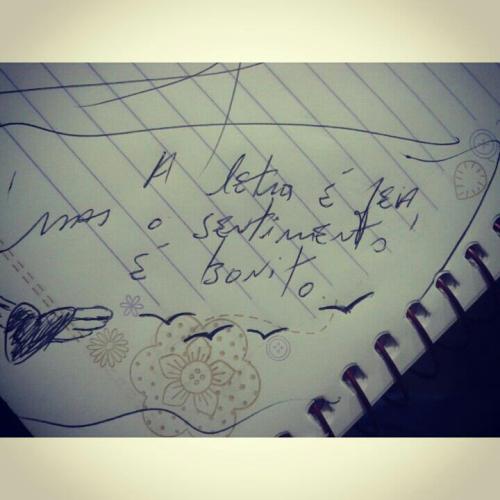 A letra é feia,
mas o sentimento
é bonito...